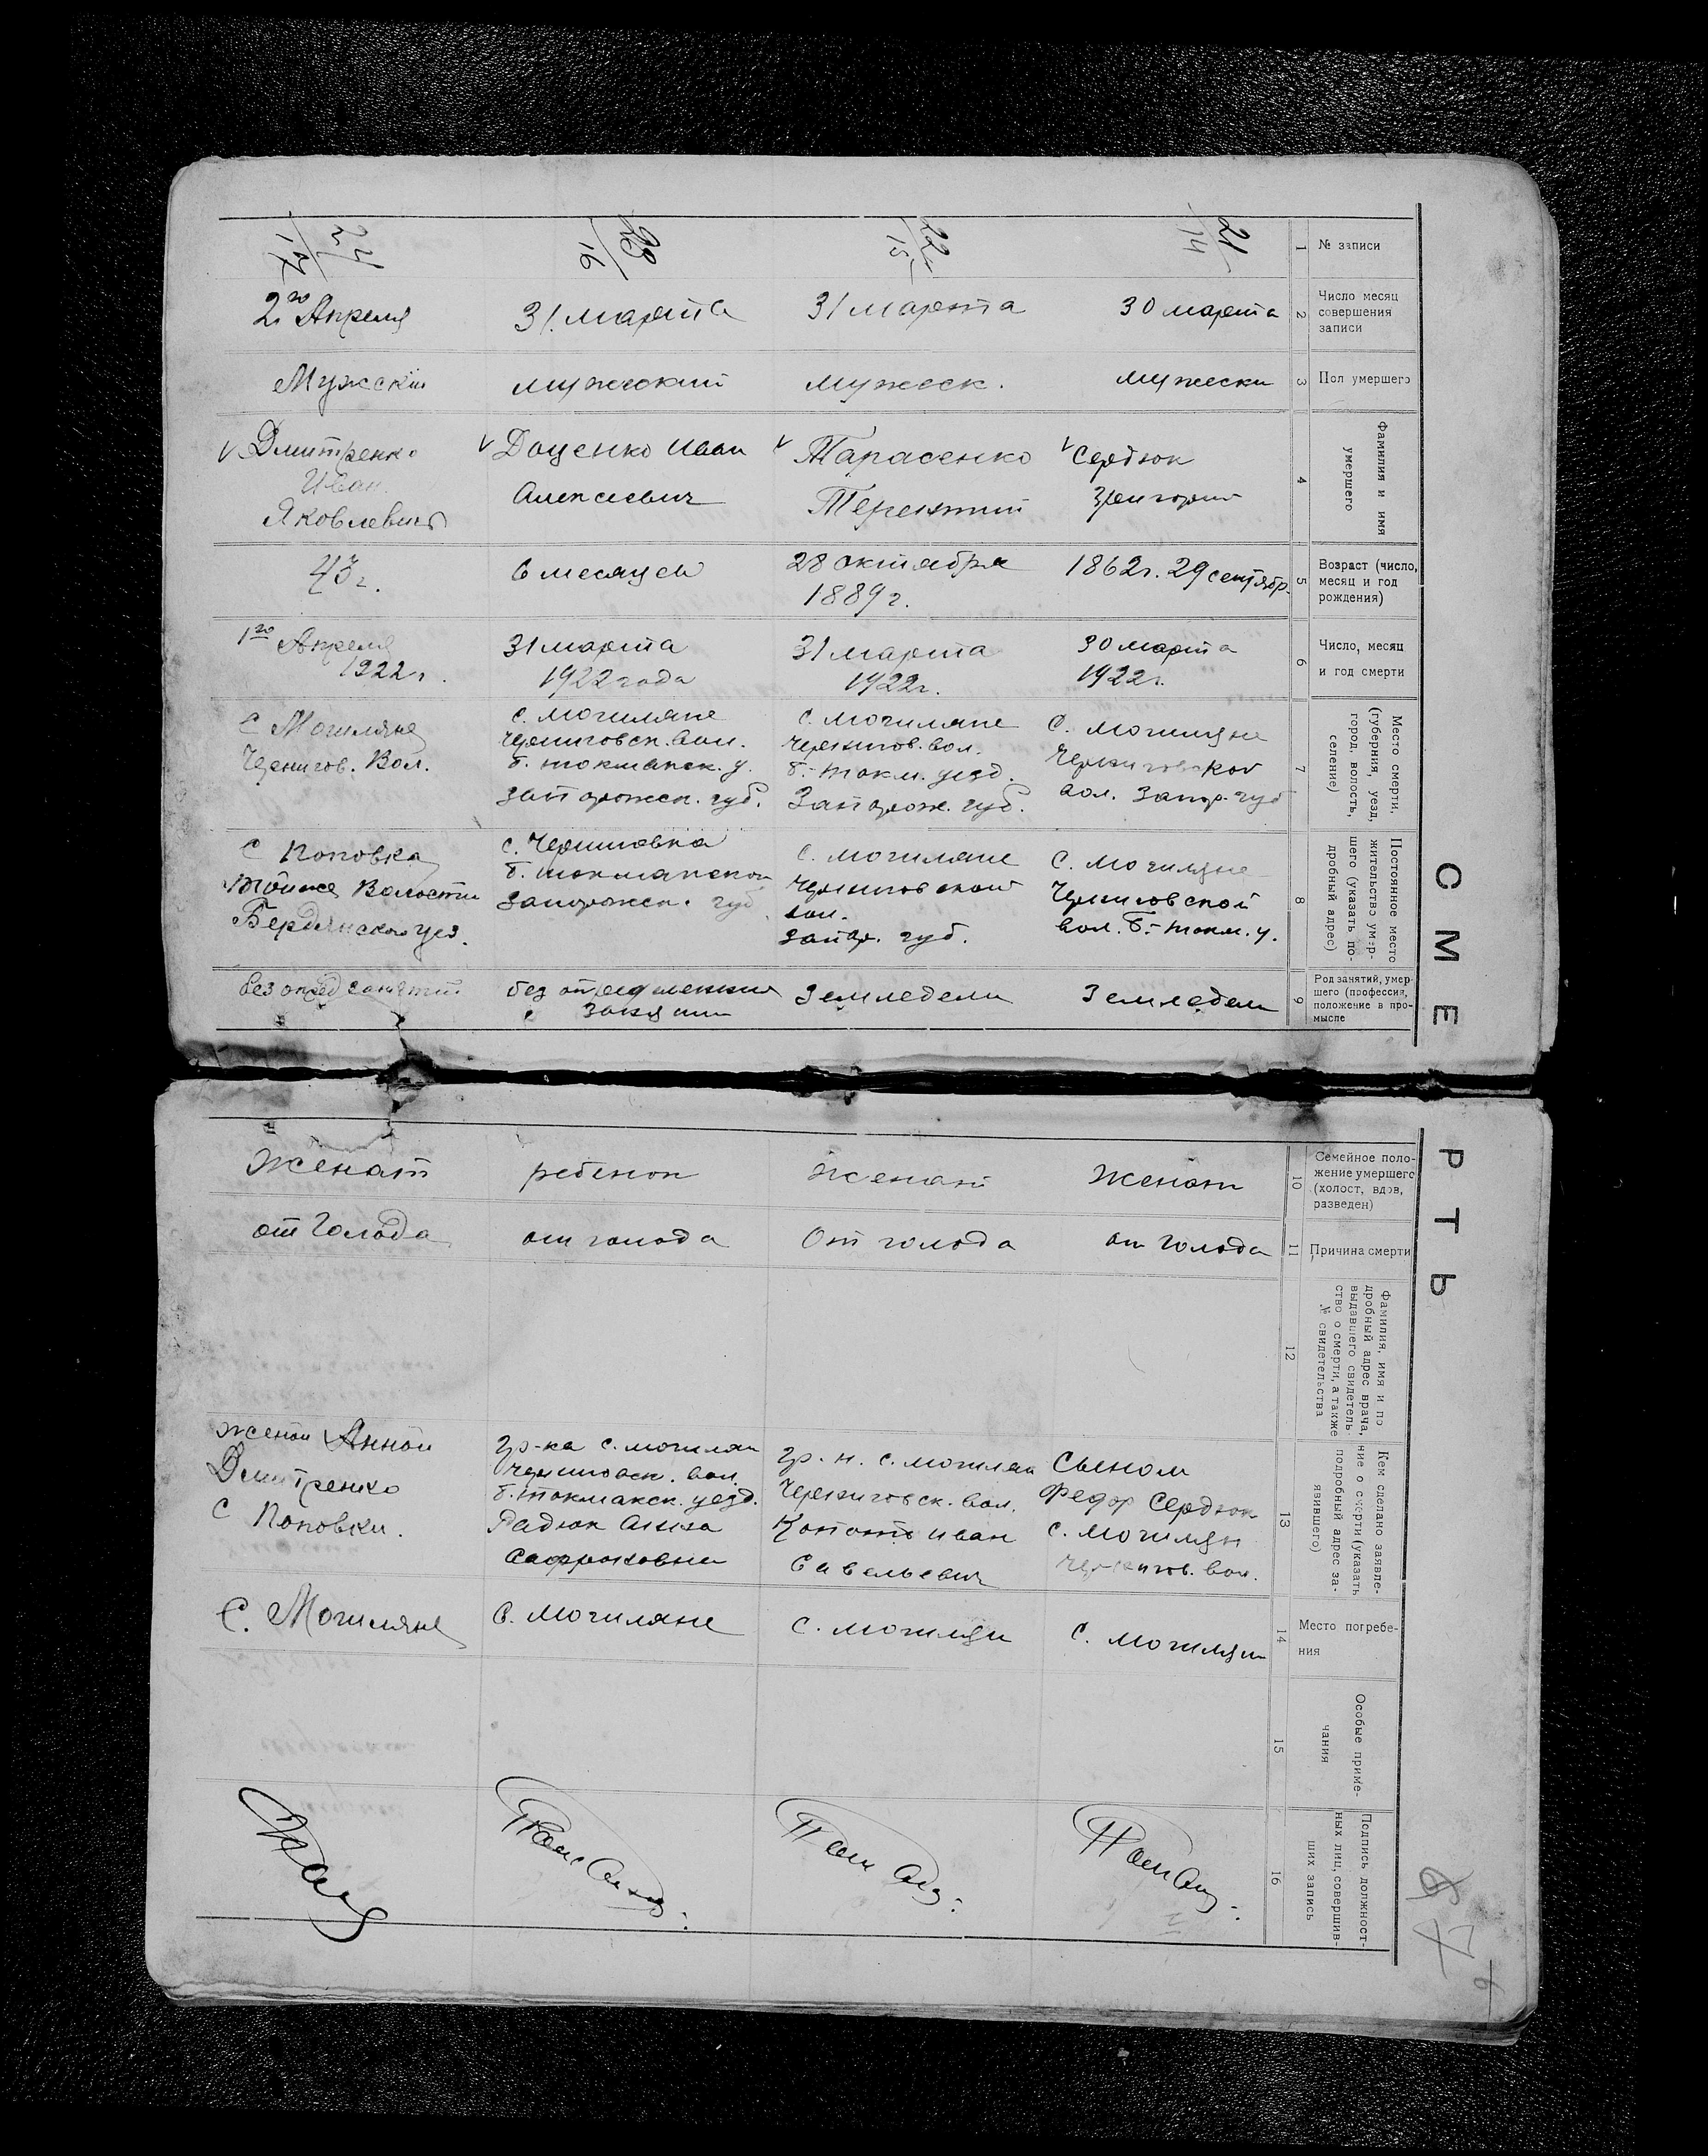 СМЕРТЬ
1
№ записи
21/14
22/15
23/16
24/17
2
Число месяц
совершения
записи
30 марта
31 марта
31 марта
2го Апреля
3
Пол умершего
мужески
мужеск.
мужеский
Мужский
4
Фамилия и имя
умершего
Сердюк
Григорий
Тарасенко
Терентий
Доценко Иван
Алексеевич
Дмитренко
Иван
Яковлевич
5
Возраст (число,
месяц и год
рождения)
1862г. 29 сентябр.
28 октября
1889 г.
6 месяцев
43 г.
6
Число, месяц
и год смерти
30 марта
1922г.
31 марта
1922г.
31 марта
1922 года
1го Апреля
1922 г.
7
Место смерти,
(губерния, уезд,
город, волость,
селение)
С. Могиляне
Черниговской
вол. Запор. губ
С. Могиляне
Чернигов. вол.
Б.-Токм. уезд.
Запорож. губ.
С. Могиляне
Черниговск. вол.
Б. Токмакск. у.
Запорожск. губ.
С Могиляне
Чернигов. Вол.
8
Постоянное место
жительство умер-
шего (указать по-
дробный адрес)
С. Могиляне
Черниговской
вол. Б.-Токм. у.
С. Могиляне
Черниговской
вол.
Запор. губ.
с. Черниговка
Б. Токмакской
Запорожск. губ
С Поповка
Тойже Волости
Бердянского уез.
9
Род занятий, умер-
шего (профессия,
положение в про-
мысле
Земледели
Земледели
без определения
занятии
без опред занятий
10
Семейное поло-
жение умершего
(холост, вдов,
разведен)
Женат
женат
ребенок
Женат
11
Причина смерти
от голода
От голода
от голода
от Голода
12
Фамилия, имя и по
дробный адрес врача,
выдавшего свидетель-
ство о смерти, а также
№ свидетельства
13
Кем сделано заявле-
ние о смерти (указать
подробный адрес за-
явившего)
Сыном
Федор Сердюк
С. Могилян
Чернигов. вол.
гр. н. с. Могилян
Черниговск. вол.
Иван
Савельевич
гр-ка с. Могилян
Черниговск. вол.
Б. Токмакск. уезд.
Радюк Анна
Сафроновна
женой Анной
Дмитренко
С Поповки.
14
Место погребе-
ния
С. Могилян
С. Могилян
С. Могиляне
С. Могиляне
15
Особые приме-
чания
16
Подпись должност-
ных лиц, совершив-
ших запись